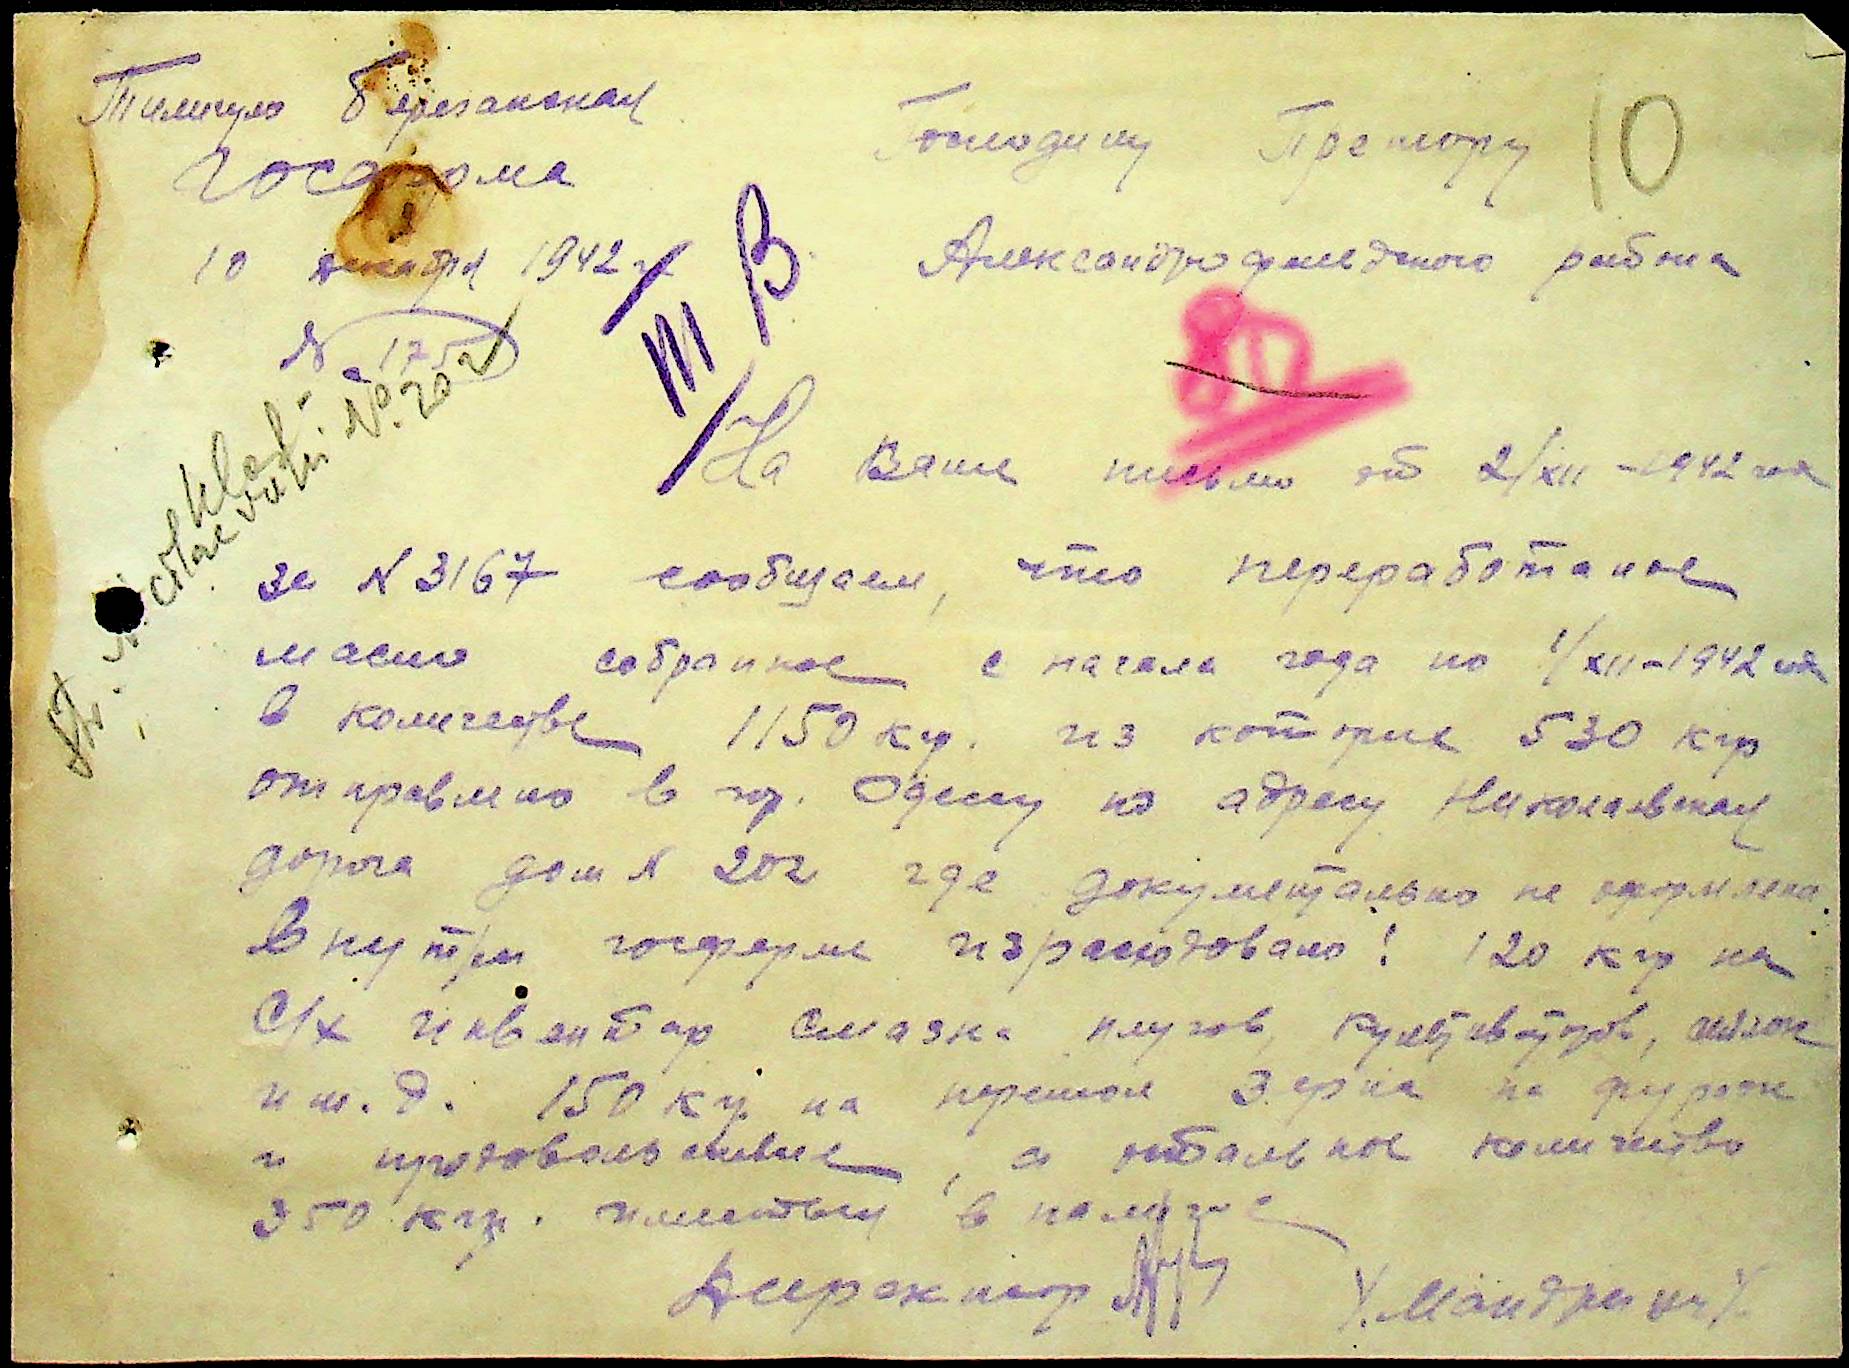 Тилигуло Березанская
Госферма
10 декабря 1942 г
N 175
Господину Претору
Александрофельдского района
10
III B
На Ваше письмо от 2/XII-1942 года
за N 3167 сообщаем, что переработаное
масло собранное с начала года по 1/XII-1942 года
в количестве 1150 кгр. из которые 530 кгр
отправлено в гор. Одессу по адресу Николаевская
дорога дом N 202 где документально не оформлено.
Внутри госферме израсходовано! 120 кгр на
С/х инвентар смазка плугов, культиваторов,
и т. д. 150 кгр на перемол зерна на фураж
и продовольствие, а остальное количество
350 кгр. имееться в наличие
Директор /Мандрыкин/
Str. Nicolae
No. 202